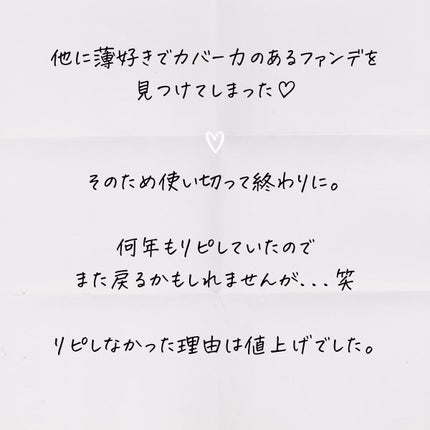 他に薄好きでカバー力のあるファンデを
見つけてしまった♡
そのため使い切って終わりに。
何年もリピしていたので
また戻るかもしれませんが...笑
リピしなかった理由は値上げでした。